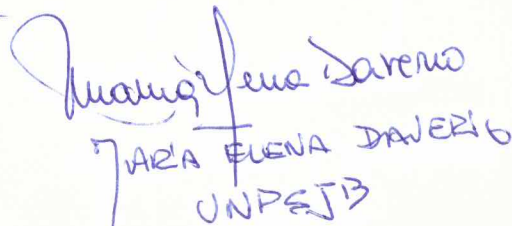 Maria Elena Daverio
MARIA ELENA DAVERIO
UNPSJB